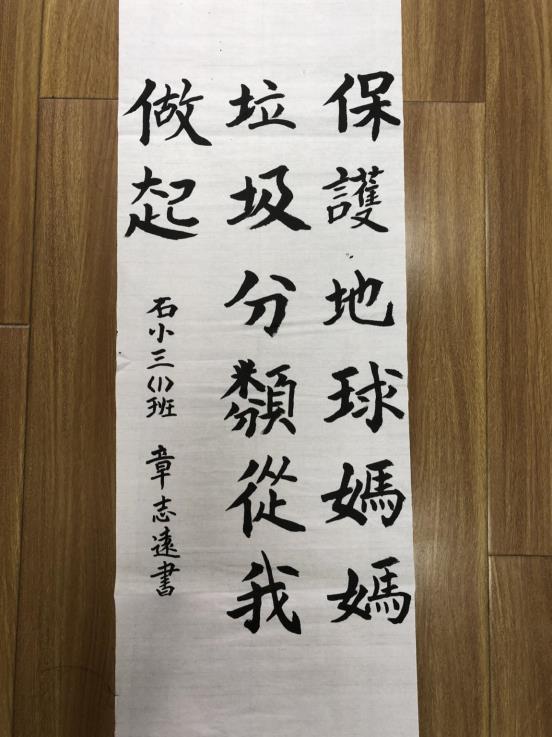 保護地球媽媽
垃圾分類從我
做起
石小三(1)班 章志遠書